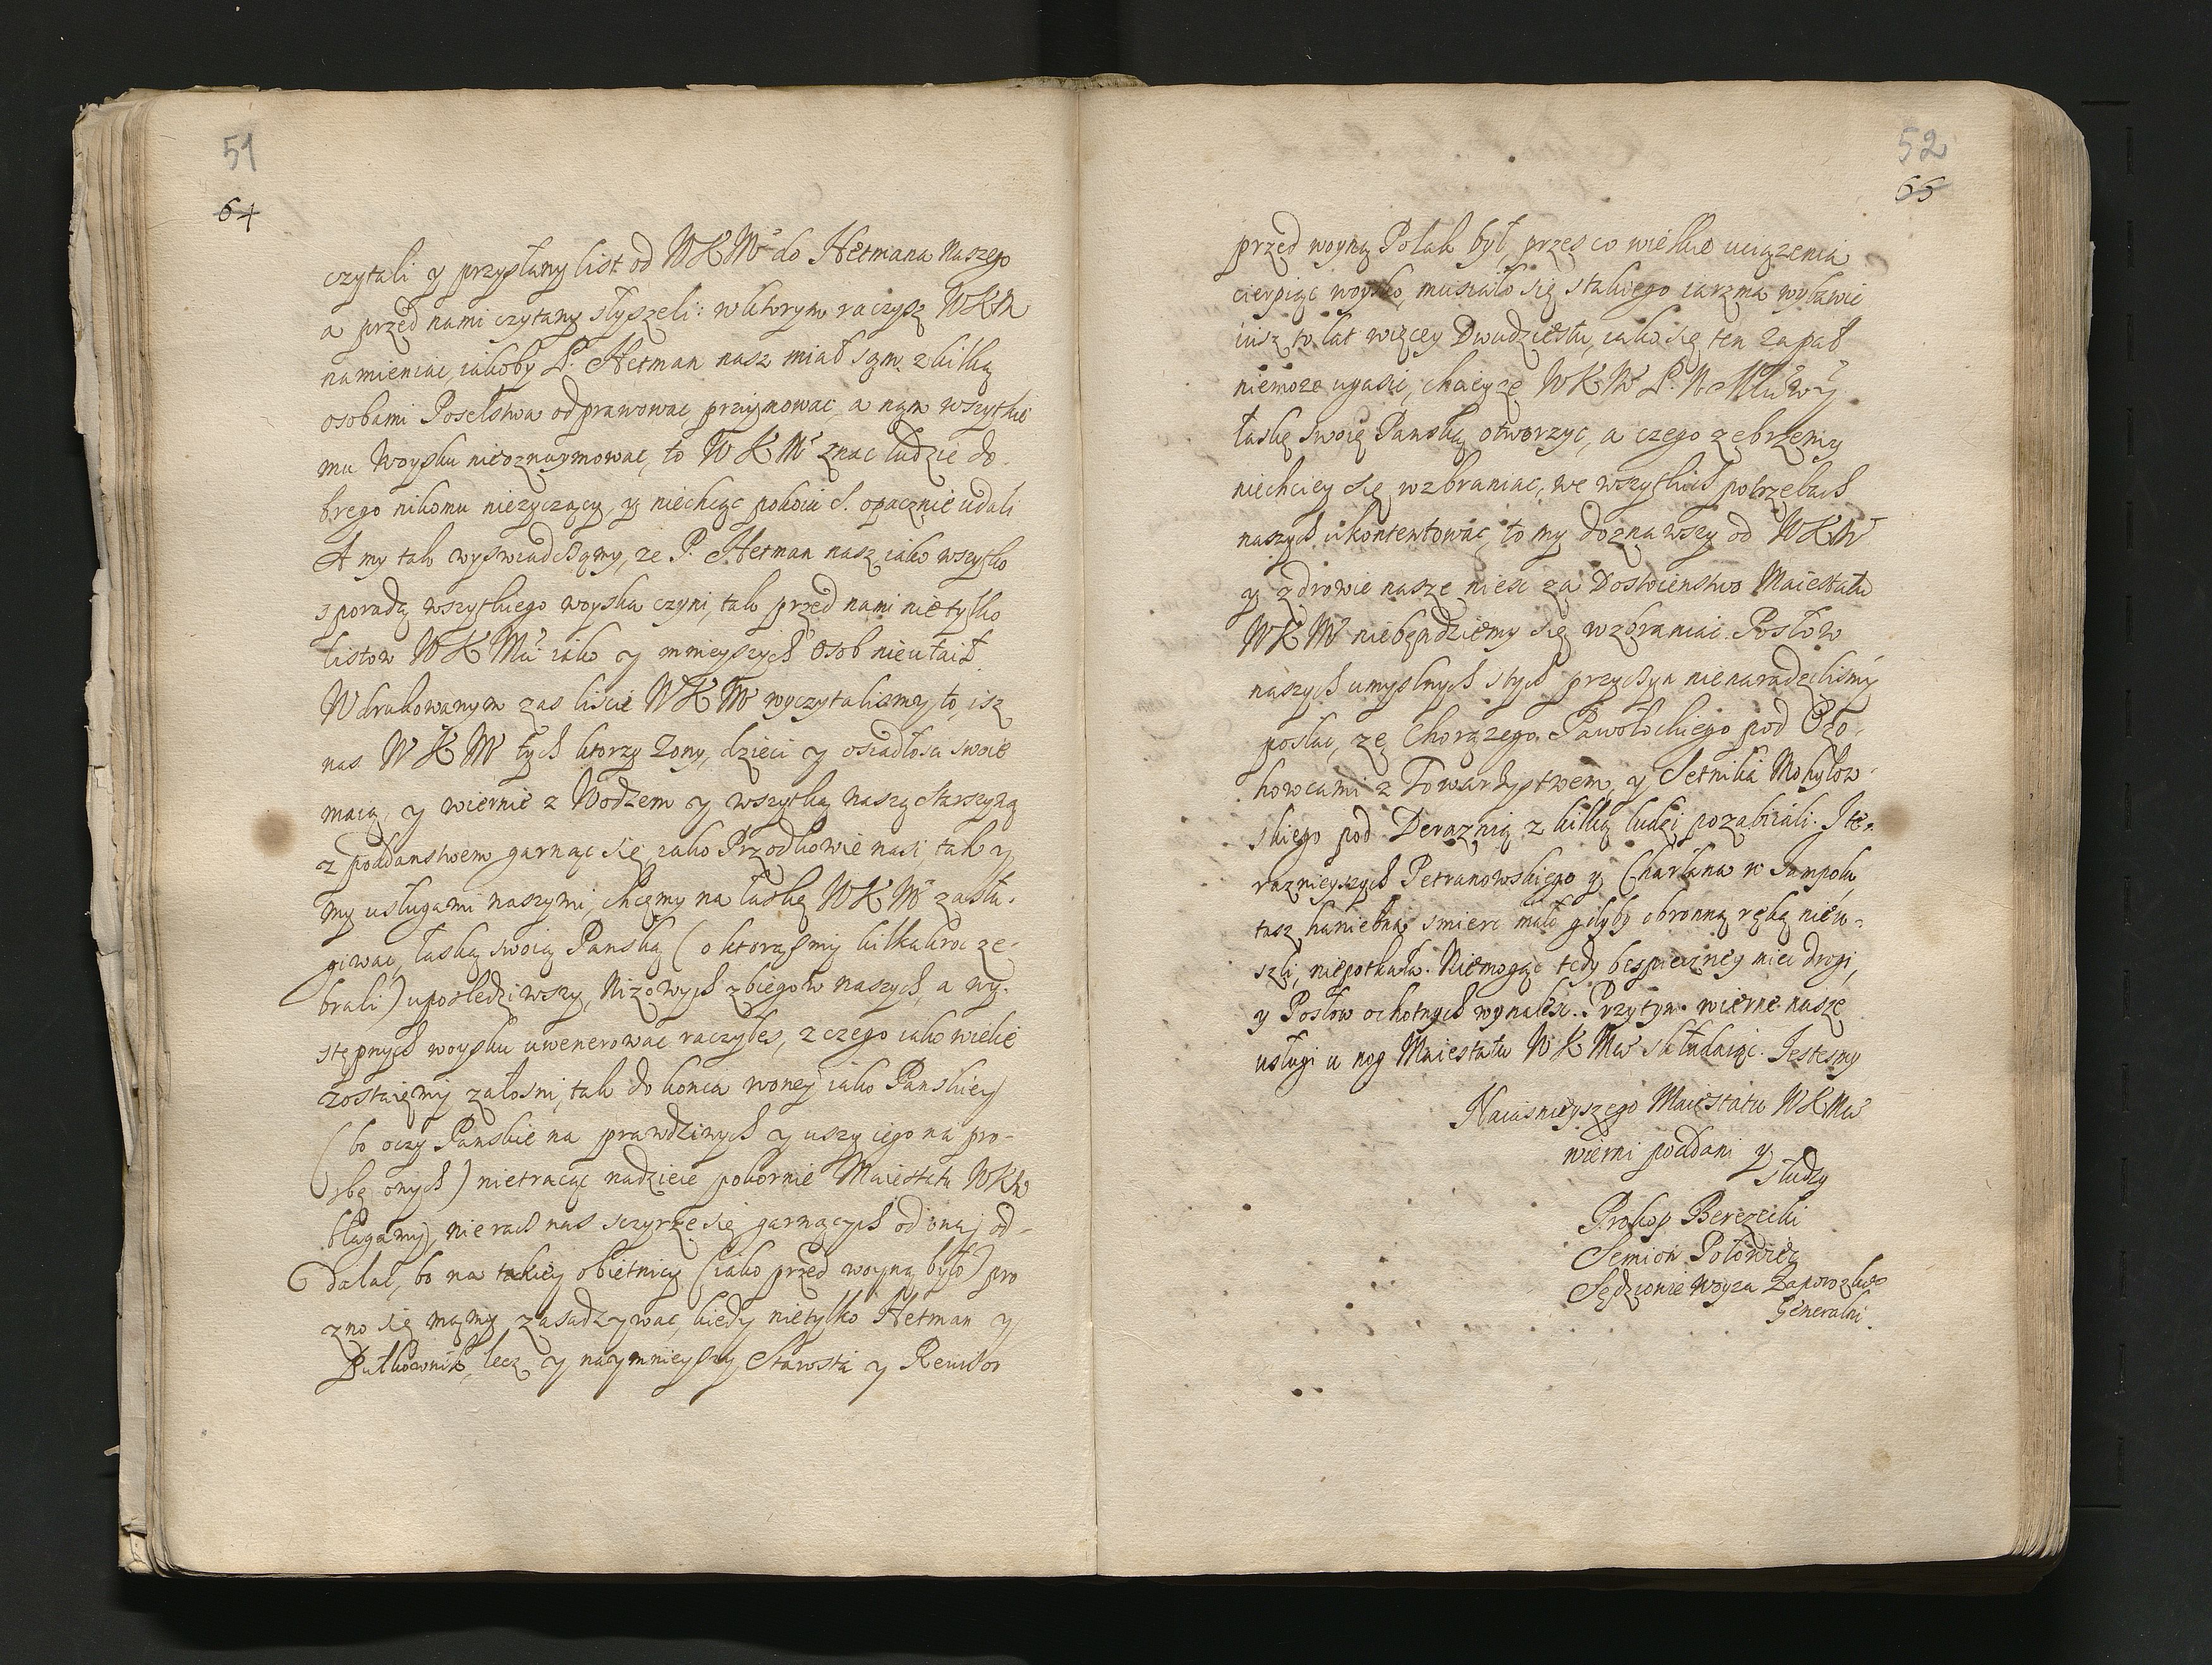 51
64
czytali y przysłany list od WKMci do Hetmana Naszego
a przed nami czytany słyszeli: wktorym raczysz WKM
namieniac, iakoby P. Hetman nasz miał sam z kilką
osobami Poselstwa odprawowac przyimowac a nam wszytkie
mu Woysku nieoznaymowac, to WKMci znac ludzie do
brego nikomu nieżyczący, y niechcąc pokoiu S. opacznie udali
A my tak wyswiadczamy, ze P. Hetman nasz iako wszytko
z poradą wszytkiego woyska czyni, tak przed nami nietylko
listow WKMci iako y mnieyszych osob nieutaił.
W drukowanym zas liscie WKM wyczytalismy to, isz
nas WKM tych ktorzy żony, dzieci y osiadłosci swoie
maią, y wiernie z Wodzem y wszytką naszą starszyzną
z poddanstwem garnąc się iako Przodkowie nasi, tak y
my usługami naszymi, chcemy na łaskę WKM zasłu-
giwac, łaską swoią Panską (o ktorąsmy kilkakroc że-
brali) uposledziwszy, Niżowych zbiegow naszych, a wy-
stępnych woysku uwenerowac raczyłes, z czego iako wielie
zostaiemy załosni, tak do konca woney iako Panskiey
(bo oczy Panskie na prawdziwych y uszy iego na pro-
sbę onych) nietracąc nadzieie pokornie Maiestatu WKM
błagamy, nie racz nas sczyrze się garnących od onaj od-
dalac, bo na takiey obietnicy (iako przed woyną było) pro
zno się mamy zasadzywac, kiedy nietylko Hetman y
Pułkownik, lecz y naymnieyszy Starosta y Rewisor
52
65
przed woyną Polak był, przes co wielkie uciążenia
cierpiąc woysko, musiało się stakiego iarzma wybawic
iusz to lat więcey Dwudziestu, iako się ten zapał
niemoże ugasic, chciey ze WKM P. N. Mlwy
łaskę swoię Panską otworzyc, a czego żebrzemy
niechciey się wzbraniac, we wszytkich potrzebach
naszych ukontentowac, to my doznawszy od WKM
y zdrowie nasze niesc za Dostoienstwo Maiestatu
WKM niebędziemy się wzbraniac. Posłow
naszych umyslnych stych przyczyn nienaradzilismy
posłac, ze Chorążego Pawołockiego pod Cło-
howcami z Towarzystwem, y Setnika Mohylow-
skiego pod Deraznią z kilką ludzi pozabiiali. I te-
raznieyszych Petranowskiego y Charłana w Jampolu
tasz haniebna smierc mało gdyby obronną ręką nieu-
szli, niepotkała. Niemogąc tedy bespieczney miec drogi,
y Posłow ochotnych wynalesc. Przytym wierne nasze
usługi u nog Maiestatu WKMci składaiąc. Jestesmy
Naiasnieyszego Maiestatu WKMci
wierni poddani y
słudzy
Prokop Berezecki
Semion Połowiec
Sędziowie Woyska Zaporozkiego
Generalni.